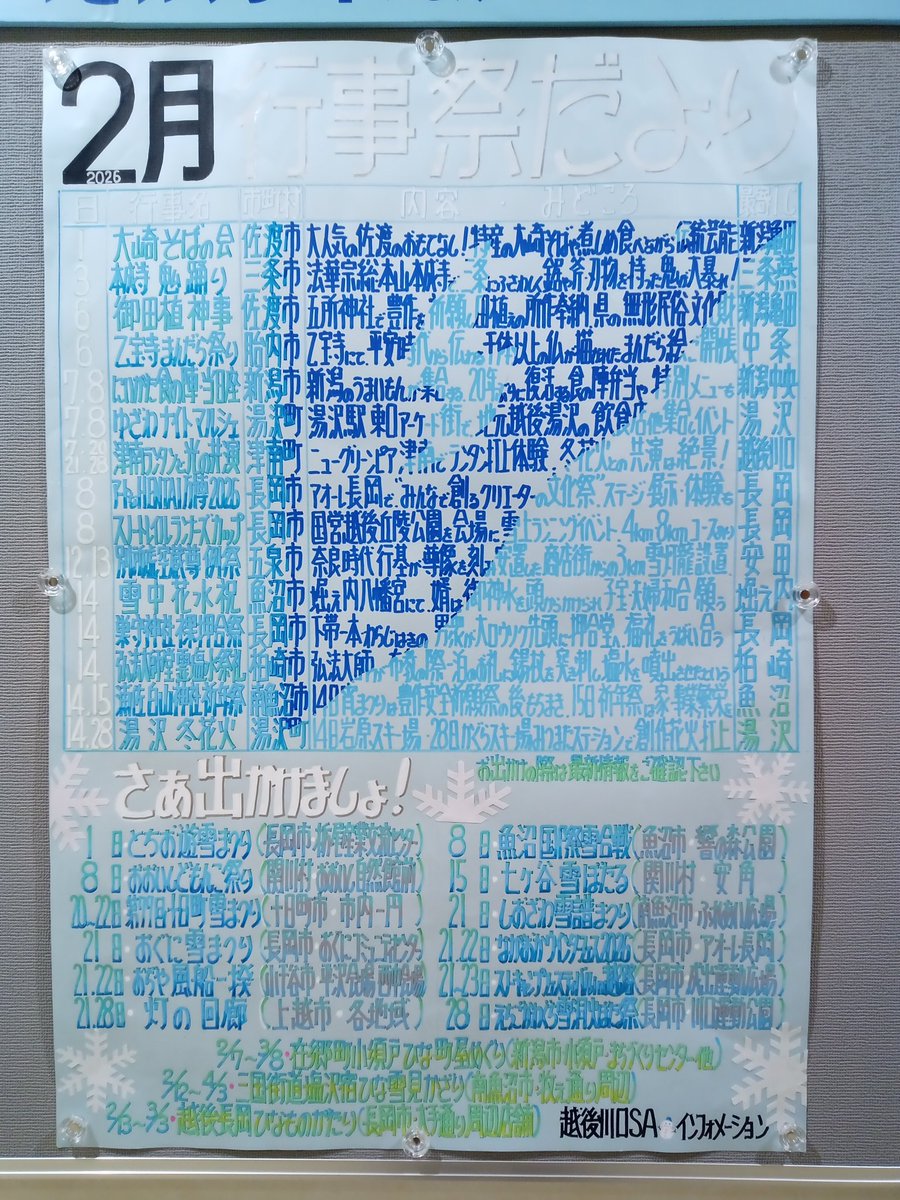 2月 行事祭だより
2026
日 行事名 市町村 内容・みどころ 最寄りIC
1 大崎そばの会 佐渡市 大人気の佐渡のおもてなし!特産の大崎そばや煮しめ食べながら伝統芸能 新潟亀田
3 本成寺 鬼踊り 三条市 法華宗総本山本成寺で三条にふさわしく鋸や斧、刃物を持った鬼の大暴れ! 三条燕
6 御田植神事 佐渡市 五所神社で豊作を祈願し田植えの所作奉納 県の無形民俗文化財 新潟亀田
6 乙宝寺まんだら祭り 胎内市 乙宝寺にて、平安時代から伝わる千体以上の仏が描かれたまんだら絵ご開帳 中条
7.8 にいがた食の陣 当日座 新潟市 新潟のうまいもんが 新潟中央
7.8 ゆざわナイトマルシェ 湯沢町 湯沢駅東口アーケード街で、地元越後湯沢の飲食店他集合しイベント 湯沢
21.23 津南ランタンと光の 津南町 ニューグリーンピア津南にてランタン打上体験。冬花火との共演は絶景! 越後川口
8 2026 長岡市 アオーレ長岡で“みんなで創るクリエーターの文化祭”ステージ・展示・体験も 長岡
8 スノートレイルランナーズカップ 長岡市 国営越後丘陵公園を会場に雪上ランニングイベント 4km8kmコースあり 長岡
12.13 例祭 五泉市 奈良時代行基が尊像を刻み安置した 商店街から約3km雪灯籠設置 安田
14 雪中花水祝 魚沼市 堀之内八幡宮にて、婿は御神水を頭からかけられ 子宝夫婦和合願う 堀之内
14 巣守神社 裸押合祭 長岡市 下帯一本わらじばきの男衆が大ロウソク先頭に押合堂へ、福札をうばい合う 長岡
14 弘法御堂 塩水祭礼 柏崎市 弘法大師 柏崎
14.15 白山神社 祈年祭 南魚沼市 魚沼
14.28 湯沢 冬花火 湯沢町 14日岩原スキー場・28日かぐらスキー場みつまたステーションで創作花火打上 湯沢
さあ出かけましょ!
お出かけの際は最新情報をご確認下さい
1日・とちお遊雪まつり(長岡市・ )
8日・魚沼国際雪合戦(魚沼市・響きの森公園)
8日・おおいしどもんこ祭り(関川村・おおいし自然館前)
15日・七ヶ谷雪ほたる(関川村・安角)
20~22日・第77回十日町雪まつり(十日町市・市内一円)
21日・しおざわ雪譜まつり(南魚沼市・ふれあい広場)
21日・おぐに雪まつり(長岡市・おぐにコミュニティセンター)
21.22日・ながおかウインターフェス2026(長岡市・アオーレ長岡)
21.22日・おぢや風船一揆(小千谷市・平沢会場 西中会場)
21~23日・スノーキャンプフェスティバルin越路(長岡市・成出運動広場)
21.28日・灯の回廊(上越市・各地域)
28日・えちごかわぐち雪洞火ぼたる祭(長岡市・川口運動公園)
2/7~3/8・在郷町小須戸ひな・町屋めぐり(新潟市・小須戸まちづくりセンター他)
2/12~4/3・三国街道塩沢宿ひな雪見かざり(南魚沼市・牧之通り周辺)
2/13~3/3・越後長岡ひなものがたり(長岡市・大手通り周辺店舗)
越後川口SA インフォメーション